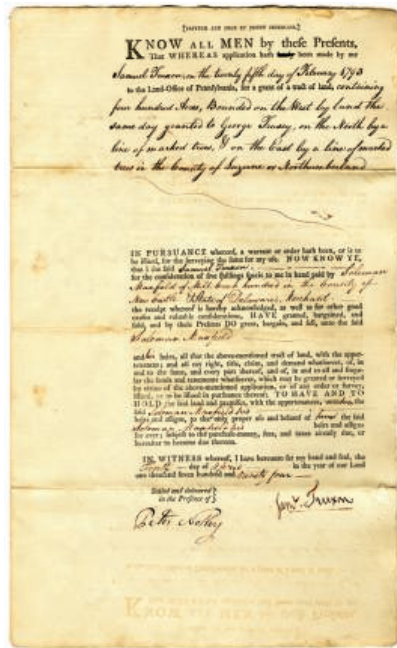 [PRINTED AND SOLD BY
KNOW ALL MEN by these Presents,
That WHEREAS application hath been made by me
Samuel Truxon, on the twenty fifth day of February 1793
to the Land-Office of Pennsylvania, for a grant of a tract of land, containing
four hundred Acres, Bounded on the West by land the
same day granted to George Truxey, on the North by a
line of marked trees, & on the East by a line of marked
trees in the County of Luzerne or Northumberland
IN PURSUANCE whereof, a warrant or order hath been, or is to
be issued, for the surveying the same for my use. NOW KNOW YE,
that I the said Samuel Truxon
for the consideration of five shillings specie to me in hand paid by Solomon
Maxfield of Mill Creek hundred in the County of
New Castle & State of Delaware, Merchant
the receipt whereof is hereby acknowledged, as well as for other good
causes and valuable considerations, HAVE granted, bargained, and
sold, and by these Presents DO grant, bargain, and sell, unto the said
Solomon Maxfield
and his heirs, all that the above-mentioned tract of land, with the appur-
tenances; and all my right, title, claim, and demand whatsoever, of, in
and to the same, and every part thereof, and of, in and to all and singu-
lar the lands and tenements whatsoever, which may be granted or surveyed
by virtue of the above-mentioned application, or of any order or survey,
issued, or to be issued in pursuance thereof; TO HAVE AND TO
HOLD the said land and premises, with the appurtenances, the
said Solomon Maxfield his
heirs and assigns, to the only proper use and behoof of the said
Solomon Maxfield his heirs and assigns
for ever; subject to the purchase-money, fees, and taxes already due, or
hereafter to become due thereon.
IN WITNESS whereof, I have hereunto set my hand and seal, the
day of in the year of our Lord
one thousand seven hundred and ninety four
Sealed and delivered
in the Presence of
Peter
Saml. Truxon